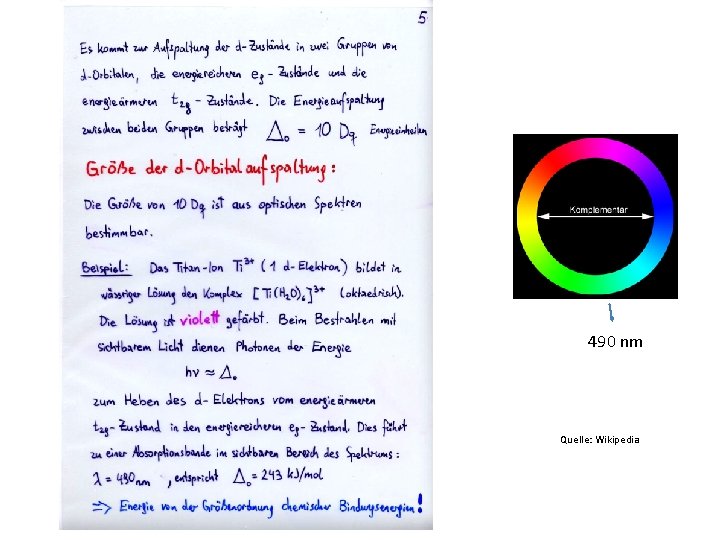 5
Es kommt zur Aufspaltung der d-Zustände in zwei Gruppen von
d-Orbitalen, die energiereicheren eg - Zustände und die
energieärmeren t2g - Zustände. Die Energieaufspaltung
zwischen beiden Gruppen beträgt Δo = 10 Dq Energieeinheiten
Größe der d-Orbitalaufspaltung:
Die Größe von 10 Dq ist aus optischen Spektren
bestimmbar.
Beispiel: Das Titan-Ion Ti³⁺ (1 d-Elektron) bildet in
wässriger Lösung den Komplex [Ti(H₂O)₆]³⁺ (oktaedrisch).
Die Lösung ist violett gefärbt. Beim Bestrahlen mit
sichtbarem Licht dienen Photonen der Energie
hν ≈ Δo
zum Heben des d-Elektrons vom energieärmeren
t2g - Zustand in den energiereicheren eg - Zustand. Dies führt
zu einer Absorptionsbande im sichtbaren Bereich des Spektrums:
λ = 490 nm, entspricht Δo = 243 kJ/mol
=> Energie von der Größenordnung chemischer Bindungsenergien!
Komplementär
490 nm
Quelle: Wikipedia